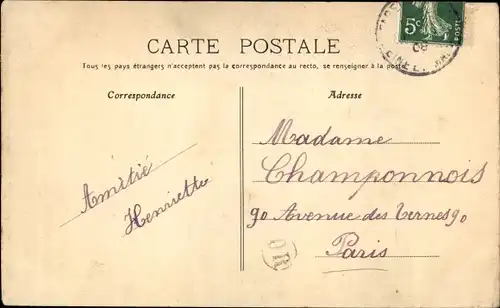 5c
POSTES
08
CARTE POSTALE
Tous les pays étrangers n'acceptent pas la correspondance au recto, se renseigner à la poste
Correspondance
Adresse
Amitié
Henriette
Madame
Champonnois
90 Avenue des Ternes 90
Paris
OR